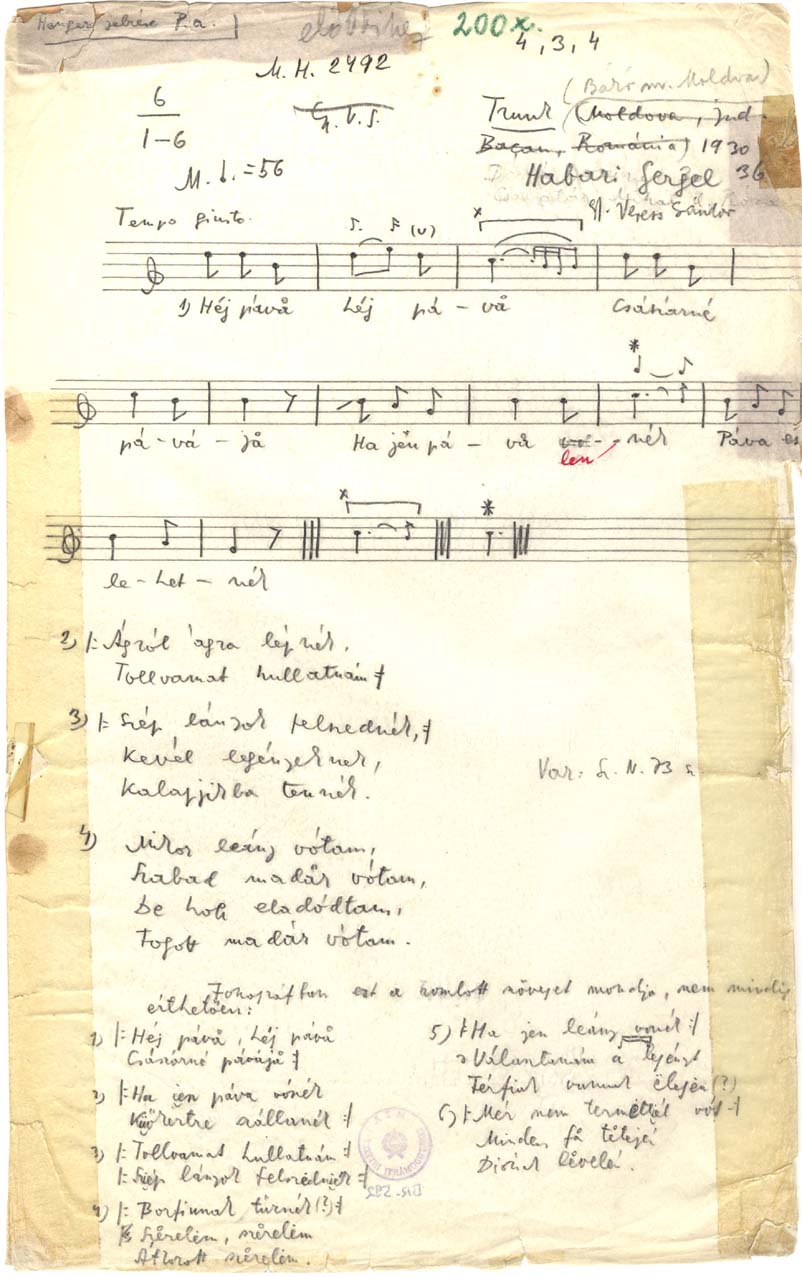 Henger P.a.
előttihez 200x.
4, 3, 4
M.H. 2492
6
1-6
(Báró nv. Moldva)
Trunk (Moldova, jud.
Bacau, Románia) 1930
M. ♩. = 56
Habari Gergel 36
gy. Veress Sándor
Tempo giusto.
1) Héj pávå Léj pá - vå Császárné
pá - vá - jå Ha jén pá - vå vol - nék Páva es
len
le - het - nék
2) |: Ágról ágra léjnék,
Tollvamat hullatnám :|
3) |: Szép lányok felszednék, :|
Kevél legényeknek,
Kalapjikba tennék.
Var: Sz. N. 73 sz.
4) Mikor leány vótam,
Szabad madår vótam,
De hogy eladódtam,
Fogott madár vótam.
Fonográfban ezt a romlott szöveget mondja, nem mindig
érthetően:
1) |: Héj pávå, Léj pávå
Császárné pávájå :|
2) |: Ha jen páva vónék
szállanék :|
3) |: Tollvamat hullatnám :|
|: Szép lányok felszednék :|
4) |: Borfinnak türnék (?) :|
Szerelem, szerelem
Átkozott szerelem.
5) |: Ha jen leány vónék :|
Választanám a legényt
Térfiak vannak elején (?)
6) |: Mér nem termettél vót :|
Minden få tétején
Diófák levelén.